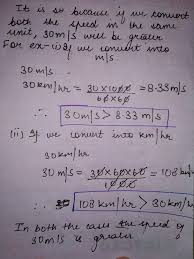 It is so because if we convert
both the speed in the same
unit, 30m/s will be greater.
For ex- (i) If we convert into
m/s.
30 m/s
30 km/hr = 30×1000/60×60 = 8.33 m/s
∴ 30m/s > 8.33 m/s
(ii) If we convert into km/hr
30 km/hr
30 m/s = 30×60×60/1000 = 108 km/
∴ 108 km/hr > 30 km/hr
In both the cases the speed of
30m/s is greater.